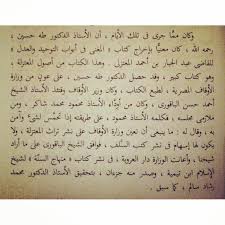 وكان ممّا جرى في تلك الأيّام ، أن الأستاذ الدكتور طه حسين ،
رحمه الله ، كان معنيًّا بإخراج كتاب « المغني في أبواب التوحيد والعدل »
للقاضي عبد الجبار بن أحمد المعتزلي . وهذا الكتاب من أصول المعتزلة ،
وهو كتاب كبير ، وقد حصل الدكتور طه حسين ، على عون من وزارة
الأوقاف المصرية ، لطبع الكتاب ، وكان وزير الأوقاف وقتها الأستاذ الشيخ
أحمد حسن الباقوري ، وكان من أودّاء محمود محمد شاكر ، وكان من
أودّائه ، فكلّمه الأستاذ محمود ، على طريقته إذا تحمّس لشيء وأمن
به ، وقال له : ما ينبغي أن تعين وزارة الأوقاف على نشر تراث المعتزلة ، ولا
يكون لها إسهام في نشر كتب السلف ، فوافق الشيخ الباقوري على ما أراد
شيخنا ، وأعانت الوزارة دار العروبة ، في نشر كتاب « منهاج السنّة » لشيخ
الإسلام ابن تيمية ، وصدر منه جزءان ، بتحقيق الأستاذ الدكتور محمد
رشاد سالم ، كما سبق .